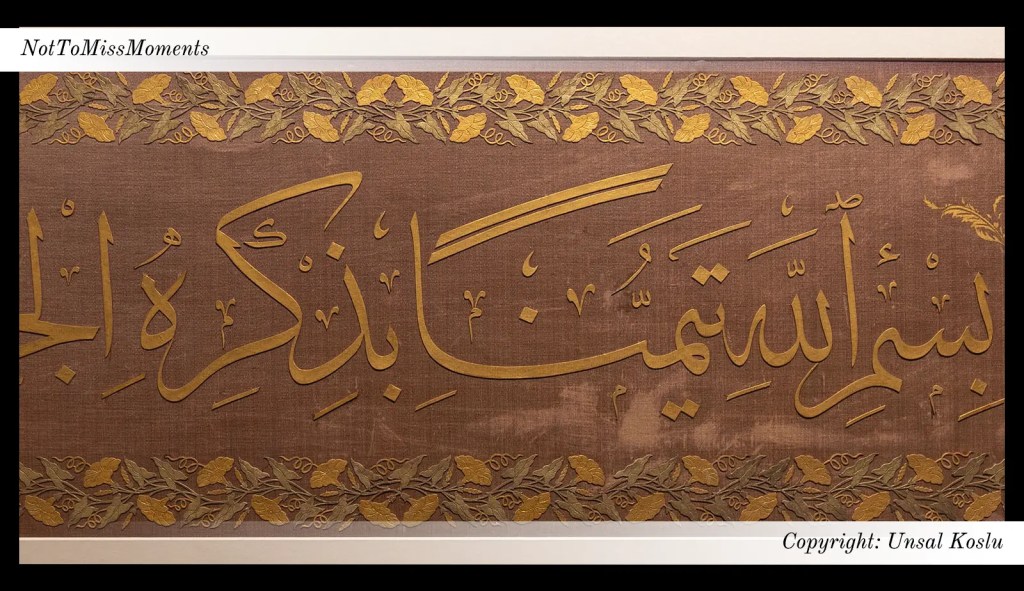 NotToMissMoments
بِسْمِ ٱللَّهِ تَيَمُّنًا بِذِكْرِهِ
Copyright: Unsal Koslu